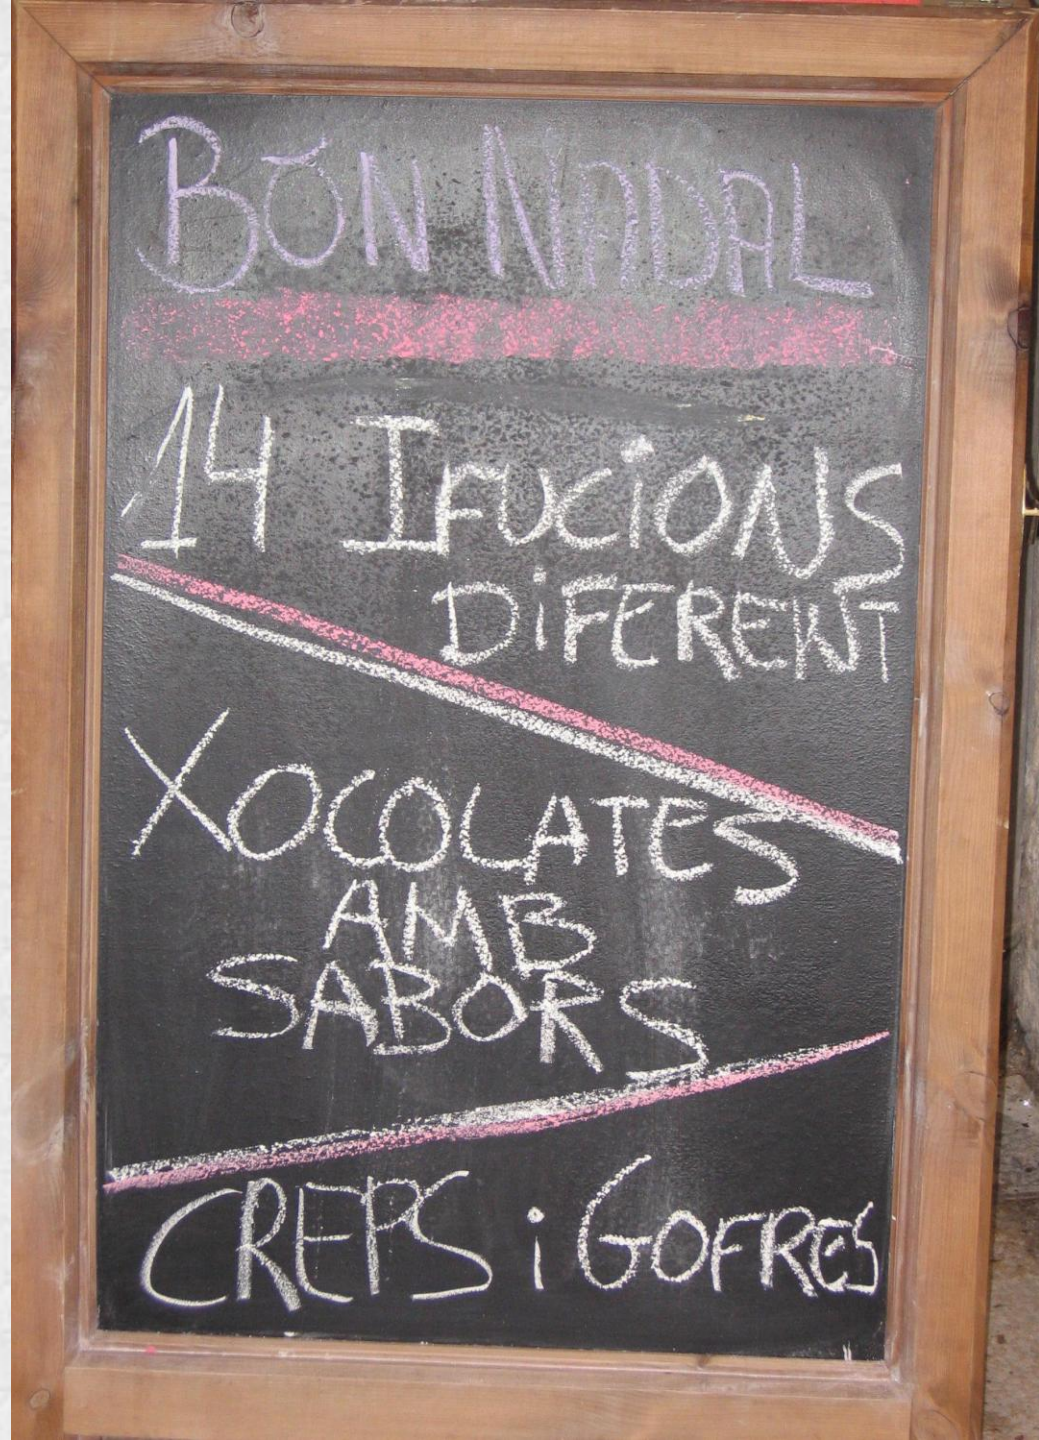 BON NADAL
14 IFUCIONS
DiFERENT
XOCOLATES
AMB
SABORS
CREPS i GOFRES